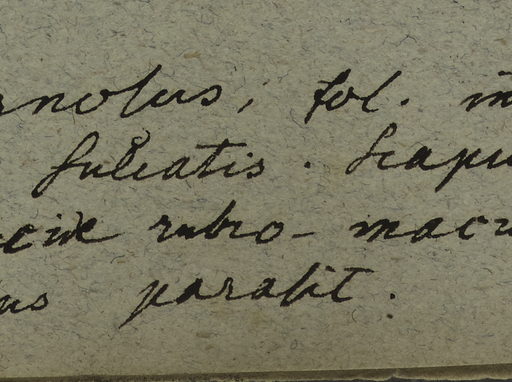 rnosus, fol. in
sulcatis. Scapu
ecide rubro-macu
us parabit.